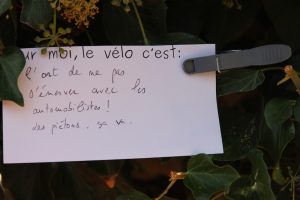 ur moi, le vélo c'est:
L'art de ne pas
s'énerver avec les
automobilistes!
des piétons, ça va.